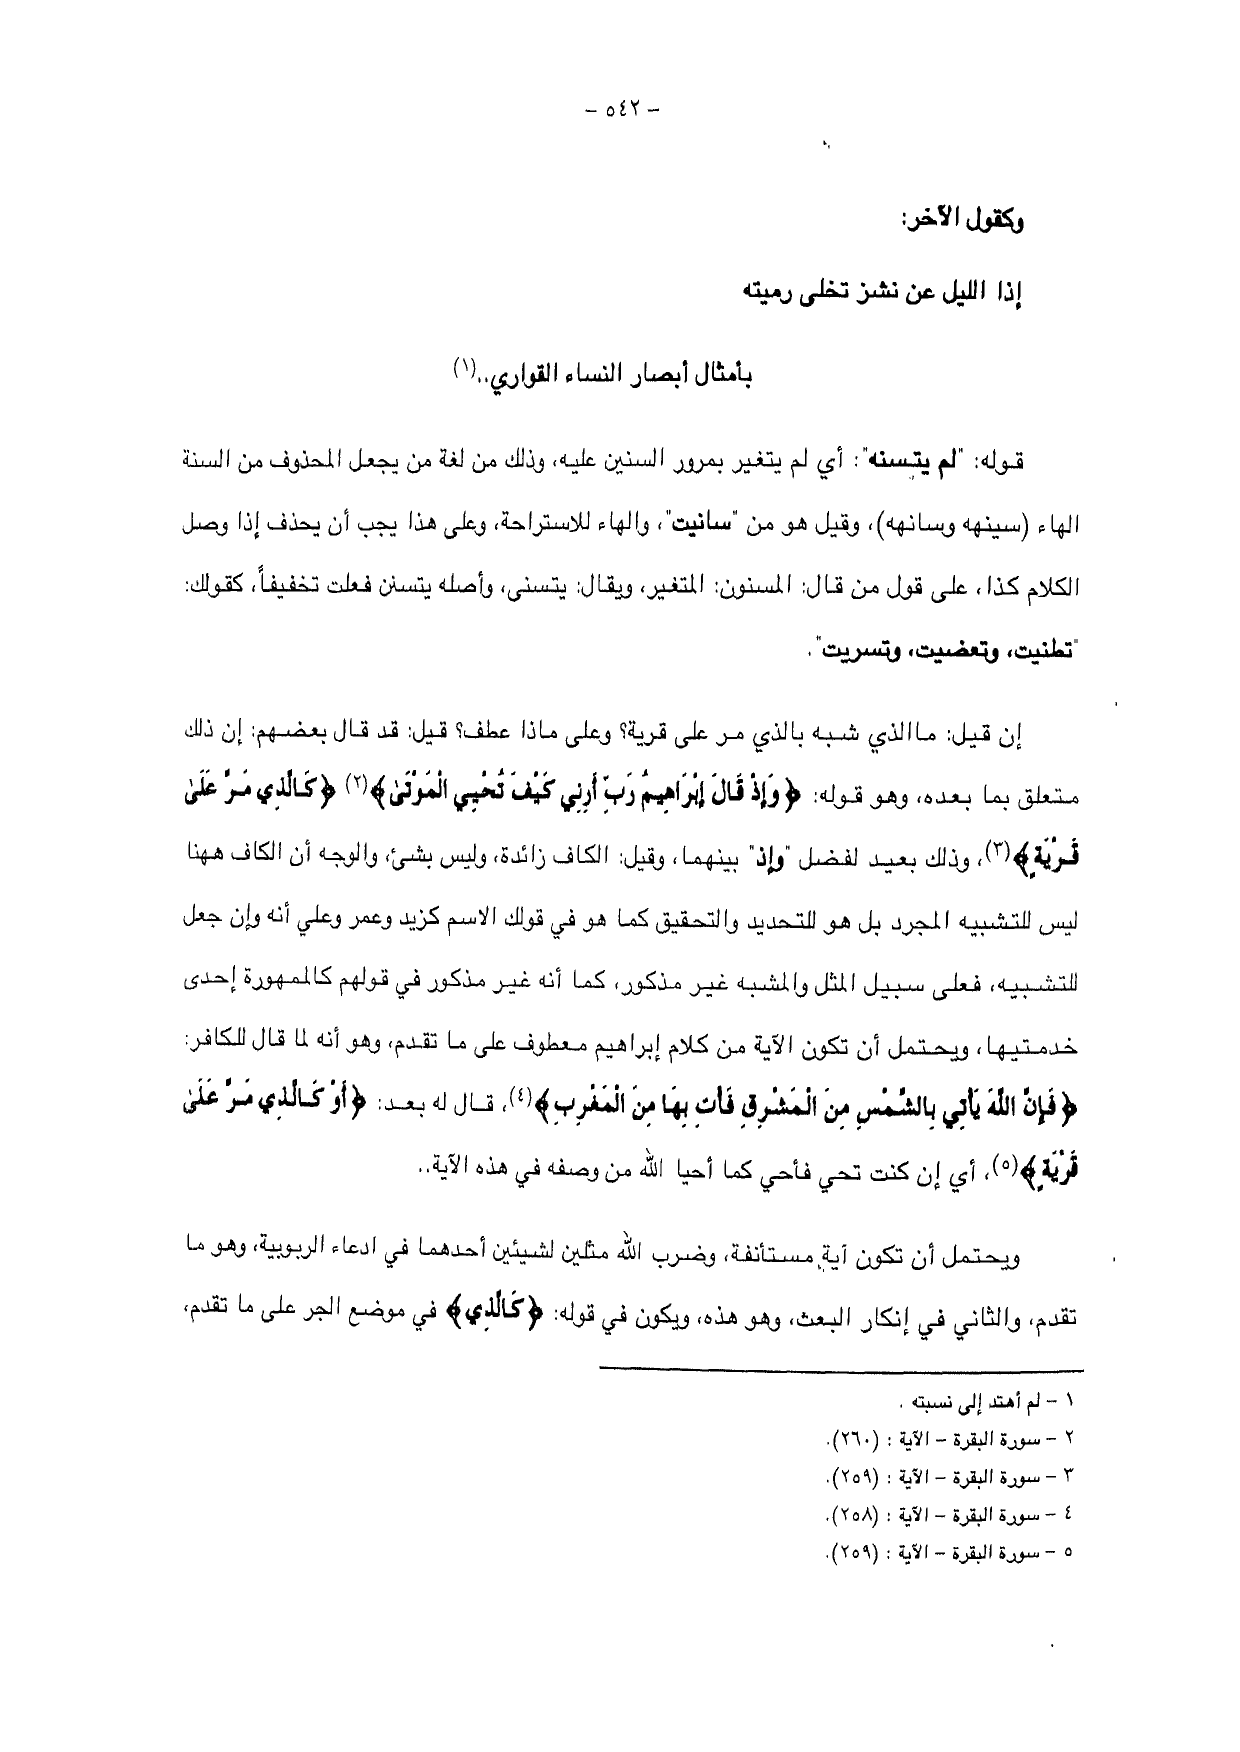 - ٥٤٢ -
وكقول الآخر:
إذا الليل عن نشز تخلى رميته
بأمثال أبصار النساء القواري..(١)
قوله: "لم يتسنه": أي لم يتغير بمرور السنين عليه، وذلك من لغة من يجعل المحذوف من السنة
الهاء (سينهه وسانهه)، وقيل هو من "سانيت"، والهاء للاستراحة، وعلى هذا يجب أن يحذف إذا وصل
الكلام كذا، على قول من قال: المسنون: المتغير، ويقال: يتسنى، وأصله يتسنن فعلت تخفيفاً، كقولك:
"تطنيت، وتعضيت، وتسريت".
إن قيل: ماالذي شبه بالذي مر على قرية؟ وعلى ماذا عطف؟ قيل: قد قال بعضهم: إن ذلك
متعلق بما بعده، وهو قوله: ﴿وَإِذْ قَالَ إِبْرَاهِيمُ رَبِّ أَرِنِي كَيْفَ تُحْيِي الْمَوْتَىٰ﴾(٢) ﴿كَالَّذِي مَرَّ عَلَىٰ
قَرْيَةٍ﴾(٣)، وذلك بعيد لفضل "وإذ" بينهما، وقيل: الكاف زائدة، وليس بشئ، والوجه أن الكاف ههنا
ليس للتشبيه المجرد بل هو للتحديد والتحقيق كما هو في قولك الاسم كزيد وعمر وعلي أنه وإن جعل
للتشبيه، فعلى سبيل المثل والمشبه غير مذكور، كما أنه غير مذكور في قولهم كالمهورة إحدى
خدمتيها، ويحتمل أن تكون الآية من كلام إبراهيم معطوف على ما تقدم، وهو أنه لما قال للكافر:
﴿فَإِنَّ اللَّهَ يَأْتِي بِالشَّمْسِ مِنَ الْمَشْرِقِ فَأْتِ بِهَا مِنَ الْمَغْرِبِ﴾(٤)، قال له بعد: ﴿أَوْ كَالَّذِي مَرَّ عَلَىٰ
قَرْيَةٍ﴾(٥)، أي إن كنت تحي فأحي كما أحيا الله من وصفه في هذه الآية..
ويحتمل أن تكون آية مستأنفة، وضرب الله مثلين لشيئين أحدهما في ادعاء الربوبية، وهو ما
تقدم، والثاني في إنكار البعث، وهو هذه، ويكون في قوله: ﴿كَالَّذِي﴾ في موضع الجر على ما تقدم،
١ - لم أهتد إلى نسبته .
٢ - سورة البقرة - الآية : (٢٦٠).
٣ - سورة البقرة - الآية : (٢٥٩).
٤ - سورة البقرة - الآية : (٢٥٨).
٥ - سورة البقرة - الآية : (٢٥٩).